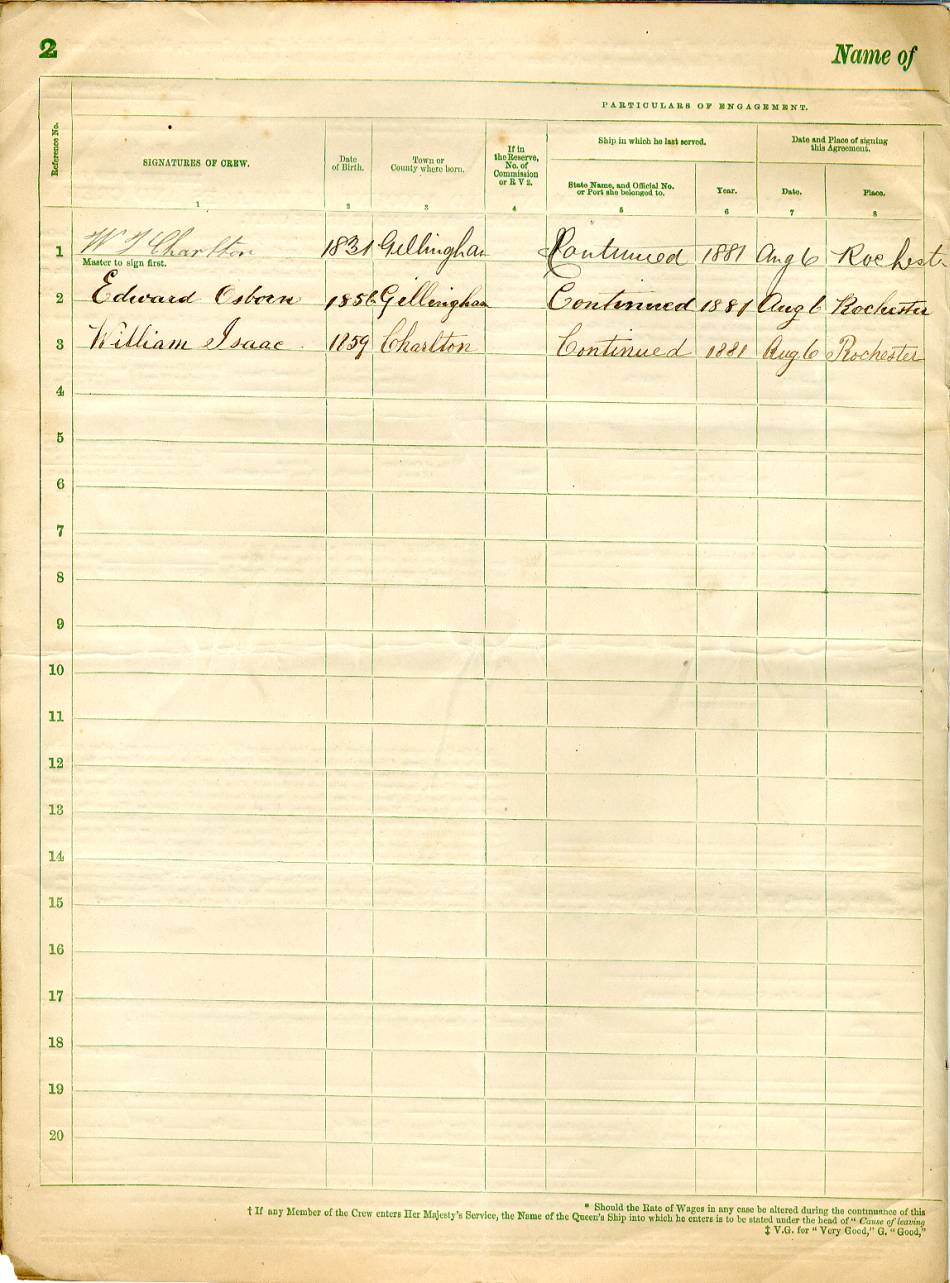 2 Name of
PARTICULARS OF ENGAGEMENT.
Reference No.
SIGNATURES OF CREW.
Date
of Birth.
Town or
County where born.
If in
the Reserve,
No. of
Commission
or R V 2.
Ship in which he last served.
Date and Place of signing
this Agreement.
State Name, and Official No.
or Port she belonged to.
Year.
Date.
Place.
1 2 3 4 5 6 7 8
1 W T Charlton 1831 Gillingham Continued 1881 Aug 6 Rochester
Master to sign first.
2 Edward Osborn 1856 Gillingham Continued 1881 Aug 6 Rochester
3 William Isaac 1859 Charlton Continued 1881 Aug 6 Rochester
4
5
6
7
8
9
10
11
12
13
14
15
16
17
18
19
20
* Should the Rate of Wages in any case be altered during the continuance of this
† If any Member of the Crew enters Her Majesty's Service, the Name of the Queen's Ship into which he enters is to be stated under the head of "Cause of leaving
‡ V.G. for "Very Good," G. "Good,"